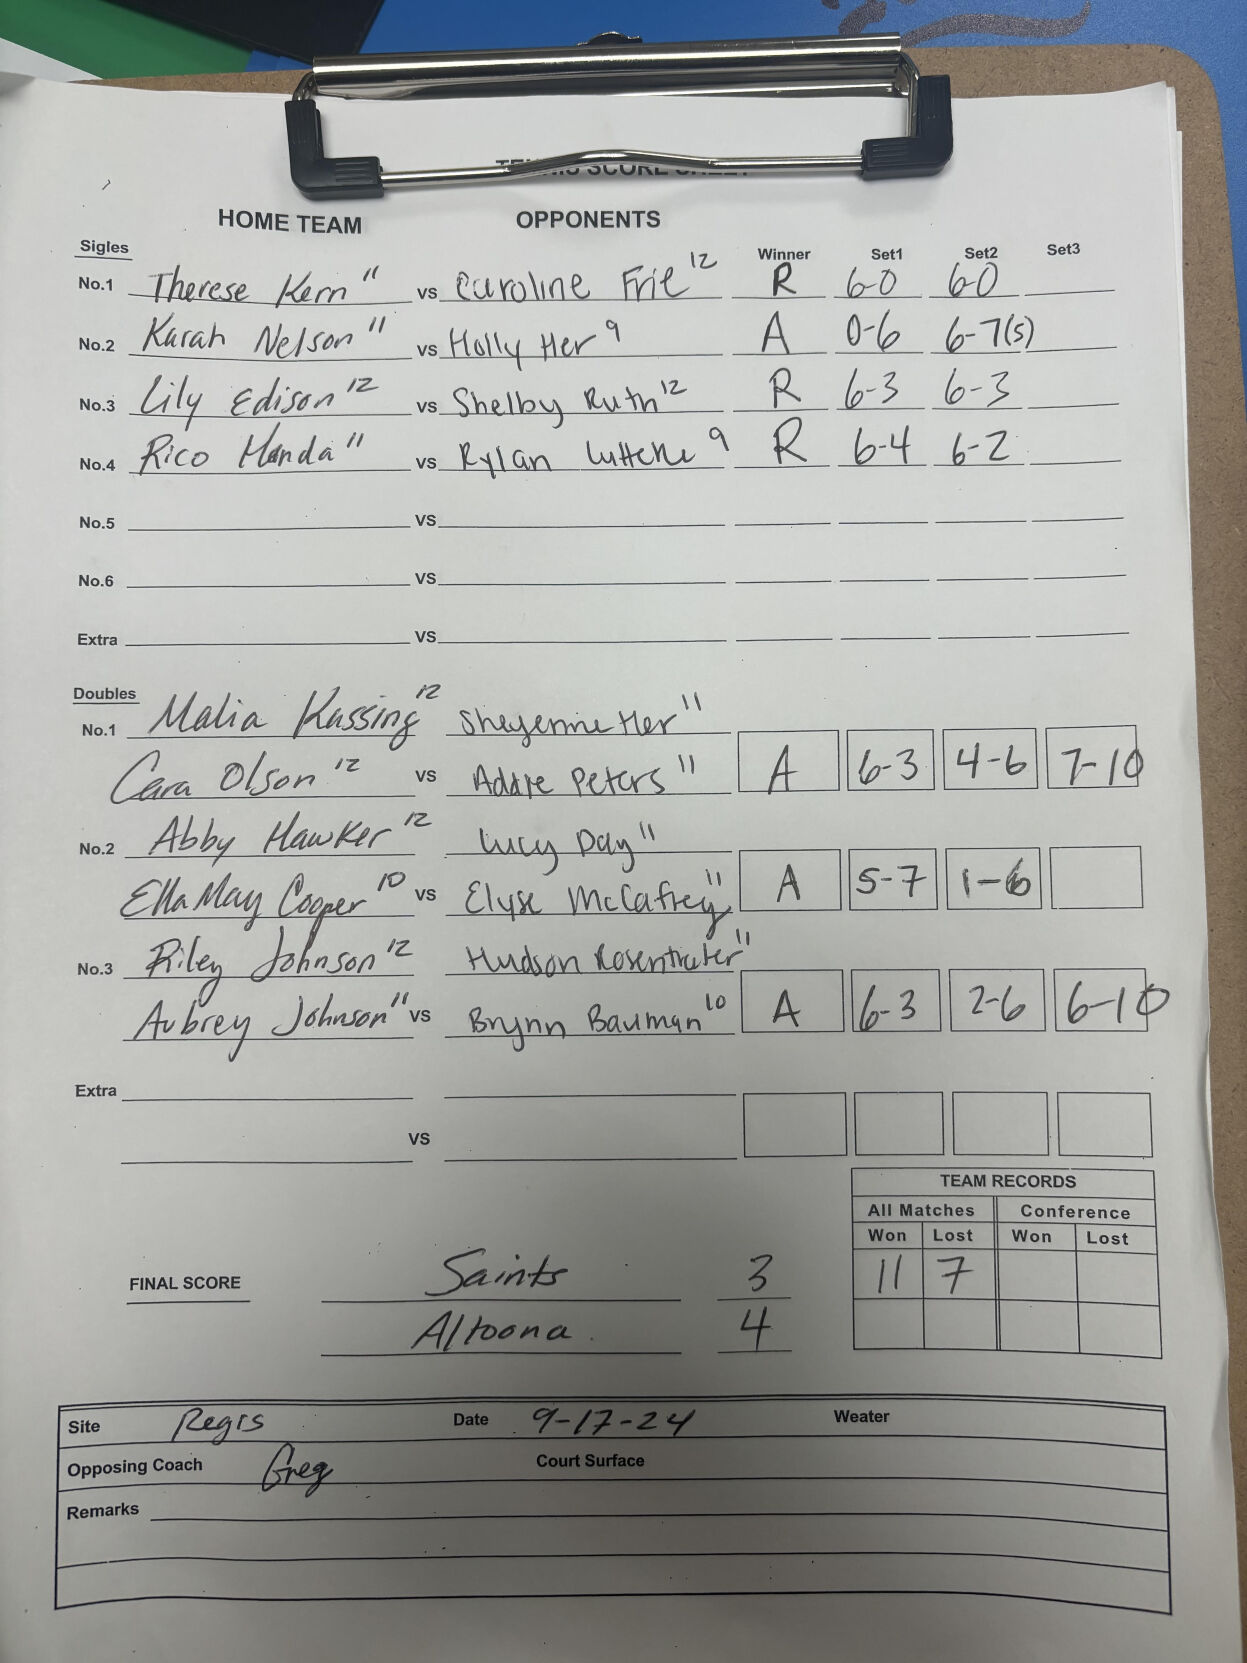 TENNIS SCORE SHEET
HOME TEAM OPPONENTS
Sigles Winner Set1 Set2 Set3
No.1 Therese Kern 11 vs Caroline Frie 12 R 6-0 6-0
No.2 Karah Nelson 11 vs Holly Her 9 A 0-6 6-7(5)
No.3 Lily Edison 12 vs Shelby Ruth 12 R 6-3 6-3
No.4 Rico Handa 11 vs Rylan 9 R 6-4 6-2
No.5 vs
No.6 vs
Extra vs
Doubles
No.1 Malia Kassing 12 Sheyenne Her 11
Cara Olson 12 vs Addie Peters 11 A 6-3 4-6 7-10
No.2 Abby Hawker 12 Lucy Day 11
Ella May Cooper 10 vs Elyse McCafrey 11 A 5-7 1-6
No.3 Riley Johnson 12 Hudson Rosentrater 11
Aubrey Johnson 11 vs Brynn Bauman 10 A 6-3 2-6 6-10
Extra
vs
TEAM RECORDS
All Matches Conference
Won Lost Won Lost
FINAL SCORE Saints 3 11 7
Altoona 4
Site Regis Date 9-17-24 Weater
Opposing Coach Greg Court Surface
Remarks